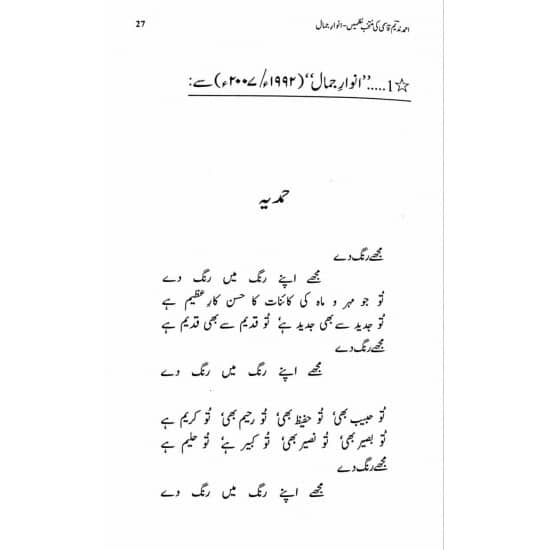 احمد ندیم قاسمی کی منتخب نظمیں - انوارِ جمال 27
☆1....."انوارِ جمال" (۱۹۹۲ء/۲۰۰۷ء) سے:
حمدیہ
مجھے رنگ دے
مجھے اپنے رنگ میں رنگ دے
تُو جو مہر و ماہ کی کائنات کا حسن کارِ عظیم ہے
تُو جدید سے بھی جدید ہے، تُو قدیم سے بھی قدیم ہے
مجھے رنگ دے
مجھے اپنے رنگ میں رنگ دے
تُو حبیب بھی، تُو حفیظ بھی، تُو رحیم بھی، تُو کریم ہے
تُو بصیر بھی، تُو نصیر بھی، تُو کبیر ہے، تُو حلیم ہے
مجھے رنگ دے
مجھے اپنے رنگ میں رنگ دے